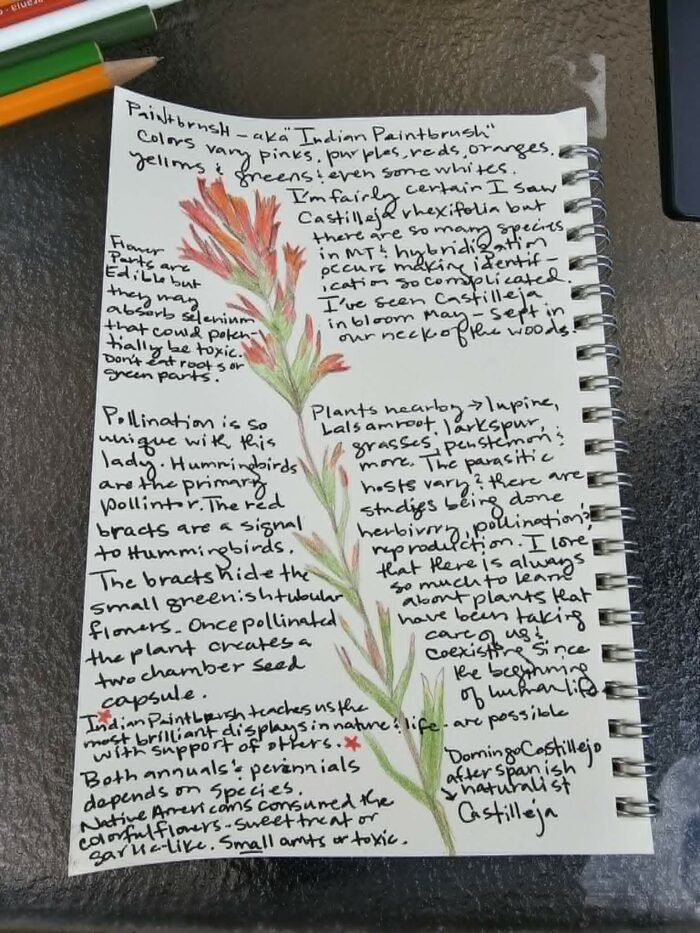 Paintbrush - aka "Indian Paintbrush"
Colors vary pinks, purples, reds, oranges.
yellows & greens & even some whites.
I'm fairly certain I saw
Castilleja rhexifolia but
there are so many species
in MT & hybridization
occurs making identif-
ication so complicated.
I've seen Castilleja
in bloom May - Sept in
our neck of the woods.
Flower
Parts are
Edible but
they may
absorb selenium
that could poten-
tially be toxic.
Don't eat roots or
green parts.
Pollination is so
unique with this
lady. Hummingbirds
are the primary
pollintor. The red
bracts are a signal
to Hummingbirds.
The bracts hide the
small greenish tubular
flowers. Once pollinated
the plant creates a
two chamber seed
capsule.
Plants nearby → lupine,
balsamroot, larkspur,
grasses, penstemon &
more. The parasitic
hosts vary & there are
studies being done
herbivory, pollination &
reproduction. I love
that there is always
so much to learn
about plants that
have been taking
care of us &
coexisting since
the beginning
of human life.
Indian Paintbrush teaches us the
most brilliant displays in nature & life - are possible
with support of others.
Both annuals & perinnials
depends on species.
Native Americans consumed the
colorful flowers - sweet treat or
garlic-like. Small amts or toxic.
Domingo Castillejo
after spanish
naturalist
Castilleja